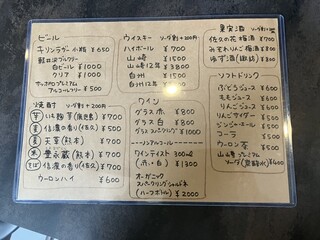 ビール
キリンラガー小瓶 ¥650
軽井沢ブルワリー
白ビール ¥1000
クリア ¥1000
サッポロプレミアム
アルコールフリー ¥500
焼酎 ソーダ割+200円
芋 いも麹芋(鹿児島) ¥700
麦 信濃の香り(佐久) ¥500
麦 天草(熊本) ¥700
米 豊永蔵(熊本) ¥700
そば 信濃の香り(佐久) ¥700
ウーロンハイ ¥600
ウイスキー ソーダ割+200円
ハイボール ¥700
山崎 ¥1500
山崎12年 ¥3800
白州 ¥1500
白州12年
ワイン
グラス 赤 ¥800
グラス 白 ¥800
グラス スパークリング ¥1000
ノンアルコール
ワインテイスト 300ml
(赤・白) ¥1300
オーガニック
スパークリング
(ハーフボトル) ¥2000
果実酒
佐久の花梅酒 ¥700
¥800
ゆず酒 ¥800
ソフトドリンク
ぶどうジュース ¥600
ももジュース ¥600
りんごジュース ¥600
りんごサイダー ¥500
ジンジャーエール ¥500
コーラ ¥500
ウーロン茶 ¥500
山崎プレミアム
ソーダ ¥400